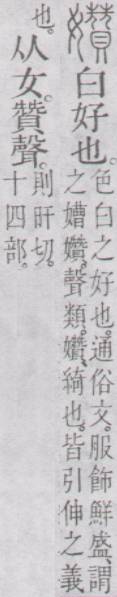 𡣪白好也。色白之好也。通俗文。服飾鮮盛謂
之𡠎孏。聲類。孏、綺也。皆引伸之義
也。从女。贊聲。則旰切。
十四部。